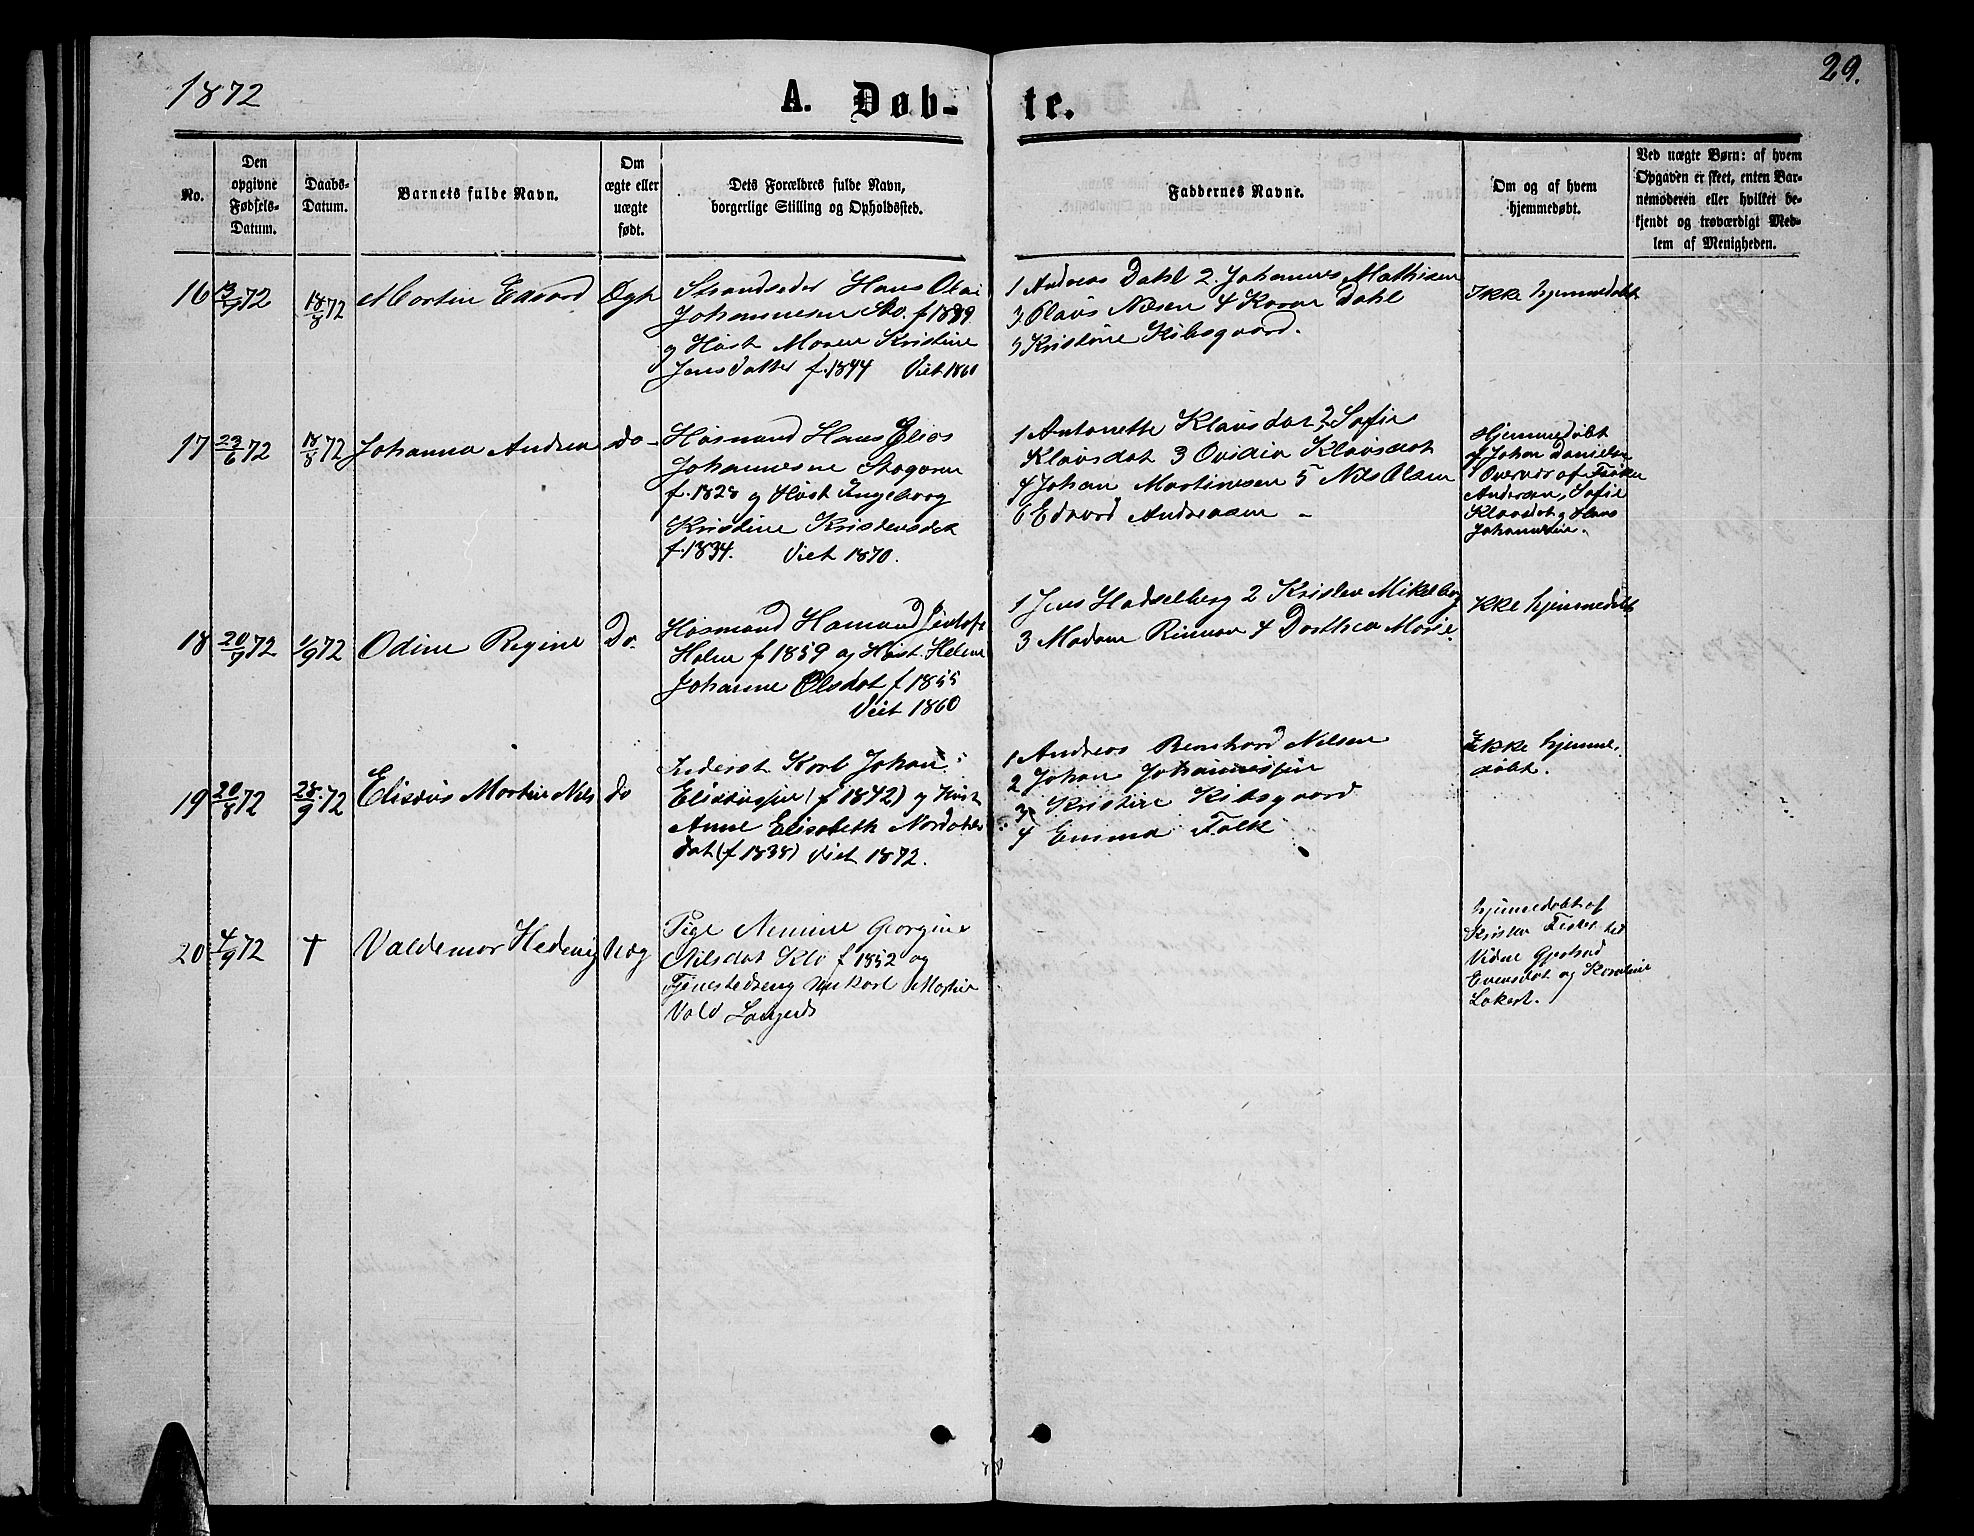 1872
A. Døb-
te.
29.
No.
Den opgivne Fødsels-Datum.
Daabs-Datum.
Barnets fulde Navn.
Om ægte eller uægte født.
Dets Forældres fulde Navn, borgerlige Stilling og Opholdssted.
Faddernes Navne.
Om og af hvem hjemmedøbt.
Ved uægte Børn: af hvem Opgaven er skeet, enten Barnemoderen eller hvilket bekjendt og troværdigt Medlem af Menigheden.
16 72 18/8 72 Martin Edvard Ægte
Hans
Johannesen f 1839
og Hust Maren Kristine
Jensdatter f. 1844 Viet 1860
1 Andreas Dahl 2. Johannes Mathisen
3 Olaus Nilsen 4 Karen Dahl
5 Kristine Kibsgaard.
Ikke hjemmedøbt
17 23/6 72 18/8 72 Johanna Andrea do
Husmand Hans Elias
Johannesen
f. 1828 og Hust Ingeborg
Kristine Kristensdat
f. 1834. Viet 1870.
1 Antonette Klausdat 2 Sofie
Klausdat 3 Ovidia Klausdat
4 Johan Martinesen 5 Nils Olsen
6 Edvard Andreasen
Hjemmedøbt
af Johan Danielsen
i Overvær af
Andersen, Sofie
Klausdat og Hans
Johannesen.
18 20/7 72 1/9 72 Odine Regine Do.
Husmand
f 1859 og Hust. Helene
Johanne Olsdat f 1855
Viet 1860
1 Jens Hadselberg 2 Krislen Mikelborg
3 Madam Rinnan 4 Dorthea Marie.
Ikke hjemmedøbt
19 20/8 72 28/9 72 Eliseus Martin Nils do
Inderst Karl Johan
(f 1842) og Hust
Anne Elisabeth
dat (f 1838) Viet 1872.
1 Andreas Bernhard Nilsen
2 Johan Johannessen
3 Kristine Kibsgaard
4 Emma Falk
Ikke hjemme-
døbt.
20 4/9 72 † Valdemar Hedevig Uæg
Pige Georgine
Nilsdat Klo f 1852 og
Karl Martin
Vald
hjemmedøbt af
Vidne
Evensdat og